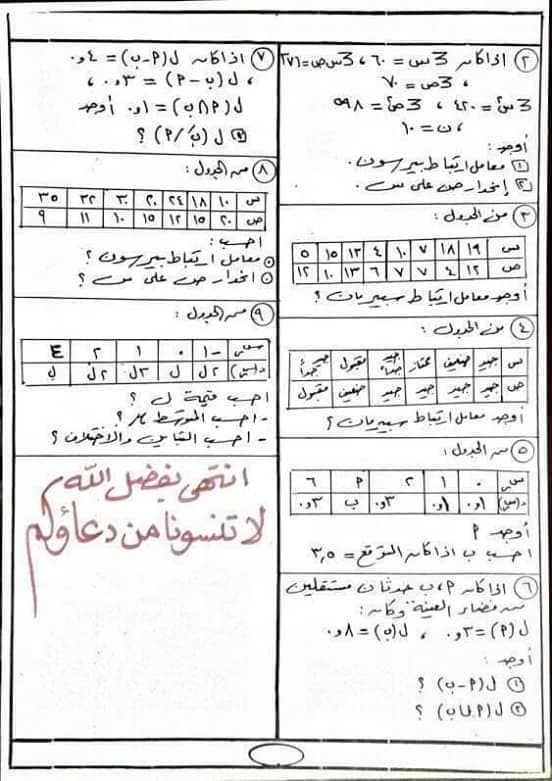 ٢ اذا كانه 3س = ٦٠ ، 3س ص = ٣٧١
، 3ص = ٧٠
3س² = ٤٢٠ ، 3ص² = ٥٩٨
، ن = ١٠
أوجد :
١ معامل ارتباط بيرسون.
٢ إنحدار ص على س.
٣ من الجدول :
س ١٩ ١٨ ٧ ١٠ ٤ ١٣ ١٥ ٥
ص ١٢ ٤ ٧ ٧ ٦ ١٣ ١٠ ١٢
أوجد معامل ارتباط سبيرمان ؟
٤ من الجدول :
س جيد ضعيف ممتاز جيد جداً مقبول جيد جداً
ص جيد جيد جيد جيد ضعيف مقبول
أوجد معامل ارتباط سبيرمان ؟
٥ من الجدول :
س ٠ ١ ٢ P ٦
د(س) ٠,١ ٠,١ ٠,٣ ب ٠,٣
أوجد P
احسب ب اذا كان التوقع = ٣,٥
٦ اذا كانه P ، ب حدثان مستقلين
من فضاء العينة وكانه :
ل(P) = ٠,٣ ، ل(ب) = ٠,٨
أوجد :
١ ل(P - ب) ؟
٢ ل(P U ب) ؟
٧ اذا كانه ل(P - ب) = ٠,٤
، ل(ب - P) = ٠,٣ ،
ل(P ∩ ب) = ٠,١ أوجد
ل(ب / P) ؟
٨ من الجدول :
س ١٠ ١٨ ٢٤ ٢٠ ٣٠ ٣٢ ٣٥
ص ٢٠ ١٥ ١٢ ١٥ ١٠ ١١ ٩
احسب :
معامل ارتباط بيرسون ؟
انحدار ص على س ؟
٩ من الجدول :
س -١ ٠ ١ ٢ ٤
د(س) ٢ل ل ٣ل ٢ل ل
احسب قيمة ل ؟
- احسب المتوسط µ ؟
- احسب التباين والاختلاف ؟
انتهى بفضل الله
لا تنسونا من دعاؤكم